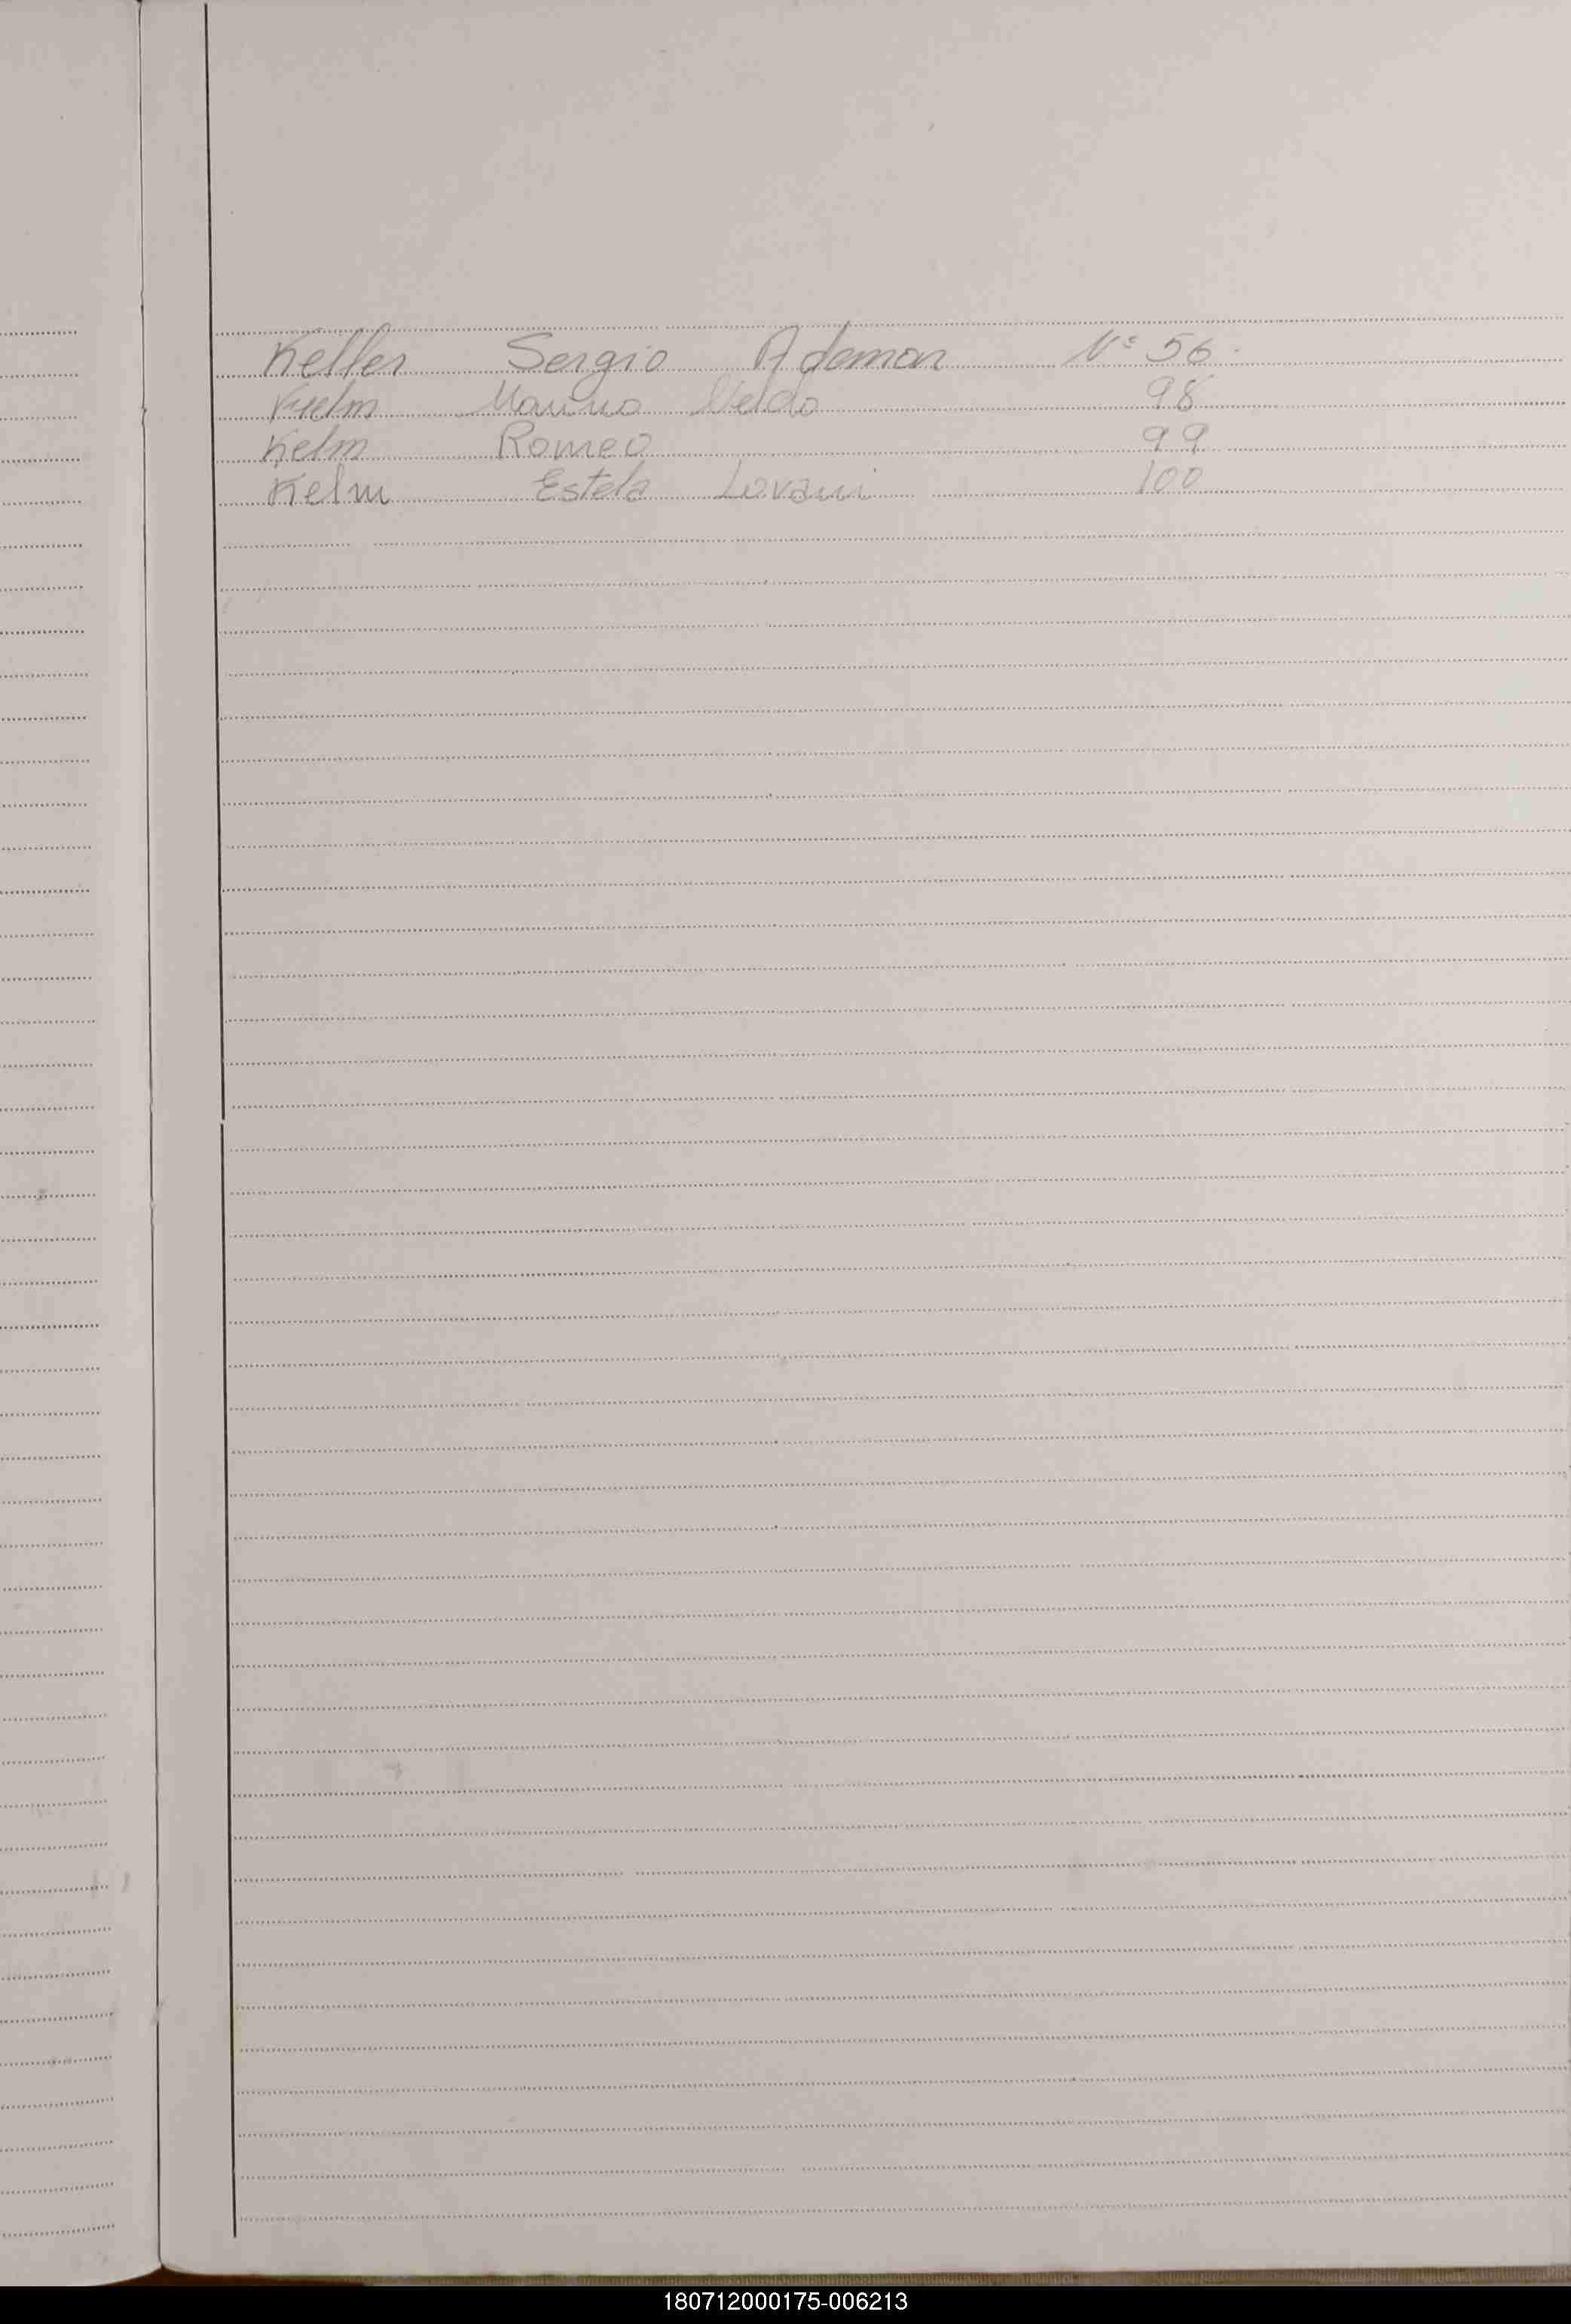 Keller Sergio Ademar Nº 56.
Kielm Marino Neldo 98
Kelm Romeo 99
Kelm Estela Lovani 100
180712000175-006213